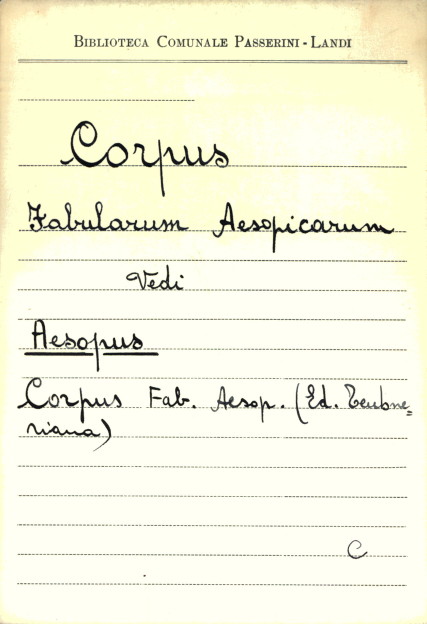 BIBLIOTECA COMUNALE PASSERINI - LANDI
Corpus
Fabularum Aesopicarum
Vedi
Aesopus
Corpus Fab. Aesop. (Ed. Teubne=
riana)
C